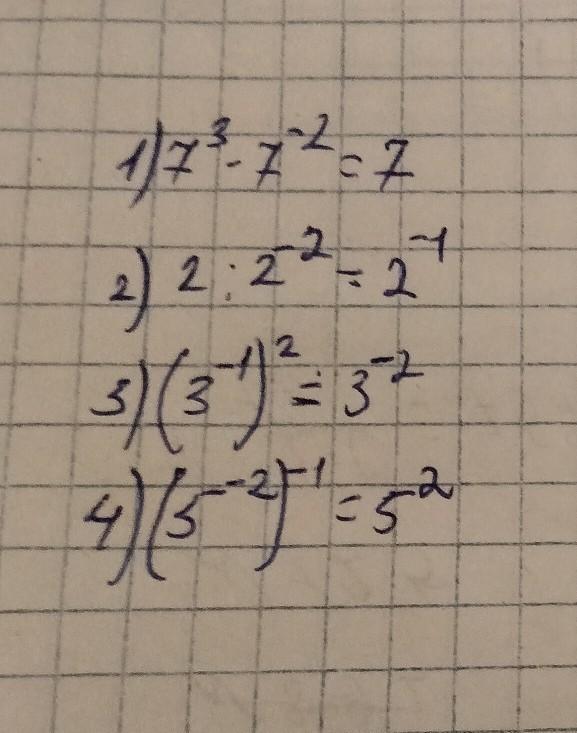 1) 7³ · 7⁻² = 7
2) 2 : 2⁻² = 2⁻¹
3) (3⁻¹)² = 3⁻²
4) (5⁻²)⁻¹ = 5²